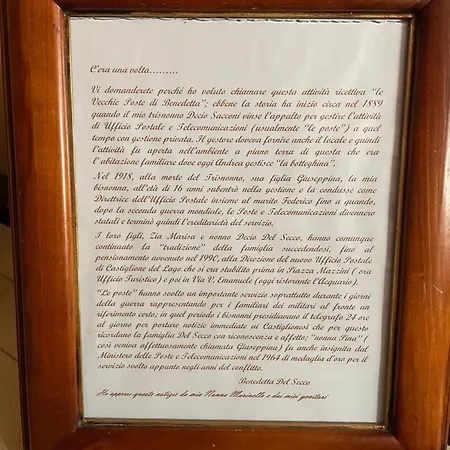 C'era una volta.........
Vi domanderete perché ho voluto chiamare questa attività ricettiva "le
Vecchie Poste di Benedetta"; ebbene la storia ha inizio circa nel 1889
quando il mio trisnonno Decio Sacconi vinse l'appalto per gestire l'attività
di Ufficio Postale e Telecomunicazioni (usualmente "le poste") a quel
tempo con gestione privata. Il gestore doveva fornire anche il locale e quindi
l'attività fu aperta nell'ambiente a piano terra di questa che era
l'abitazione familiare dove oggi Andrea gestisce "la botteghina".
Nel 1918, alla morte del Trisnonno, sua figlia Giuseppina, la mia
bisnonna, all'età di 16 anni subentrò nella gestione e la condusse come
Direttrice dell'Ufficio Postale insieme al marito Federico fino a quando,
dopo la seconda guerra mondiale, le Poste e Telecomunicazioni divennero
statali e terminò quindi l'ereditarictà del servizio.
I loro figli, Zia Marisa e nonno Decio Del Secco, hanno comunque
continuato la "tradizione" della famiglia succedendosi, fino al
pensionamento avvenuto nel 1990, alla Direzione del nuovo Ufficio Postale
di Castiglione del Lago che si era stabilito prima in Piazza Mazzini ( ora
Ufficio Turistico) e poi in Via V. Emanuele (oggi ristorante L'Acquario).
"Le poste" hanno svolto un importante servizio soprattutto durante i giorni
della guerra rappresentando per i familiari dei militari al fronte un
riferimento certo; in quel periodo i bisnonni presidiavano il telegrafo 24 ore
al giorno per portare notizie immediate ai Castiglionesi che per questo
ricordano la famiglia Del Secco con riconoscenza e affetto; "nonna Pina" (
così veniva affettuosamente chiamata Giuseppina) fu anche insignita dal
Ministero delle Poste e Telecomunicazioni nel 1964 di medaglia d'oro per il
servizio svolto appunto negli anni del conflitto.
Benedetta Del Secco
Ho appreso queste notizie da mia Nonna Marinella e dai miei genitori